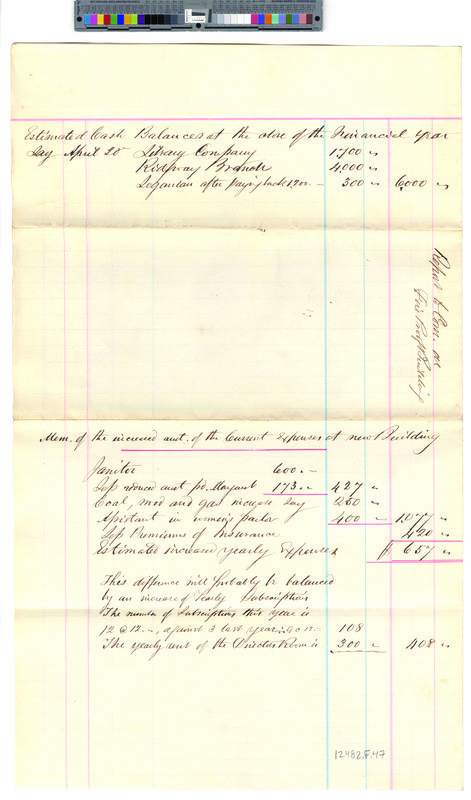 Estimated Cash Balances at the close of the Financial year
Say April 20 Library Company 1700 "
Ridgway Branch 4,000 "
Loganian after paying back 1,700. - 300 " 6000 "
Report to Com. on
Fire Proof Building
Mem. of the increased amt. of the Current Expenses at new Building
Janitor 600. -
Less reduced amt pd. Margaret 173 " 427 "
Coal, wood and gas increase say 250 "
Assistant in women's parlor 400 " 1077 "
Less Premiums of Insurance 420 "
Estimated increased yearly Expenses $ 657 "
This difference will probably be balanced
by an increase of Yearly Subscriptions
The number of Subscriptions this year is
12 @ 12. -, against 3 last year, 9 @ 12 - 108
The yearly rent of the Directors Room is 300 " 408 "
12482.F.47